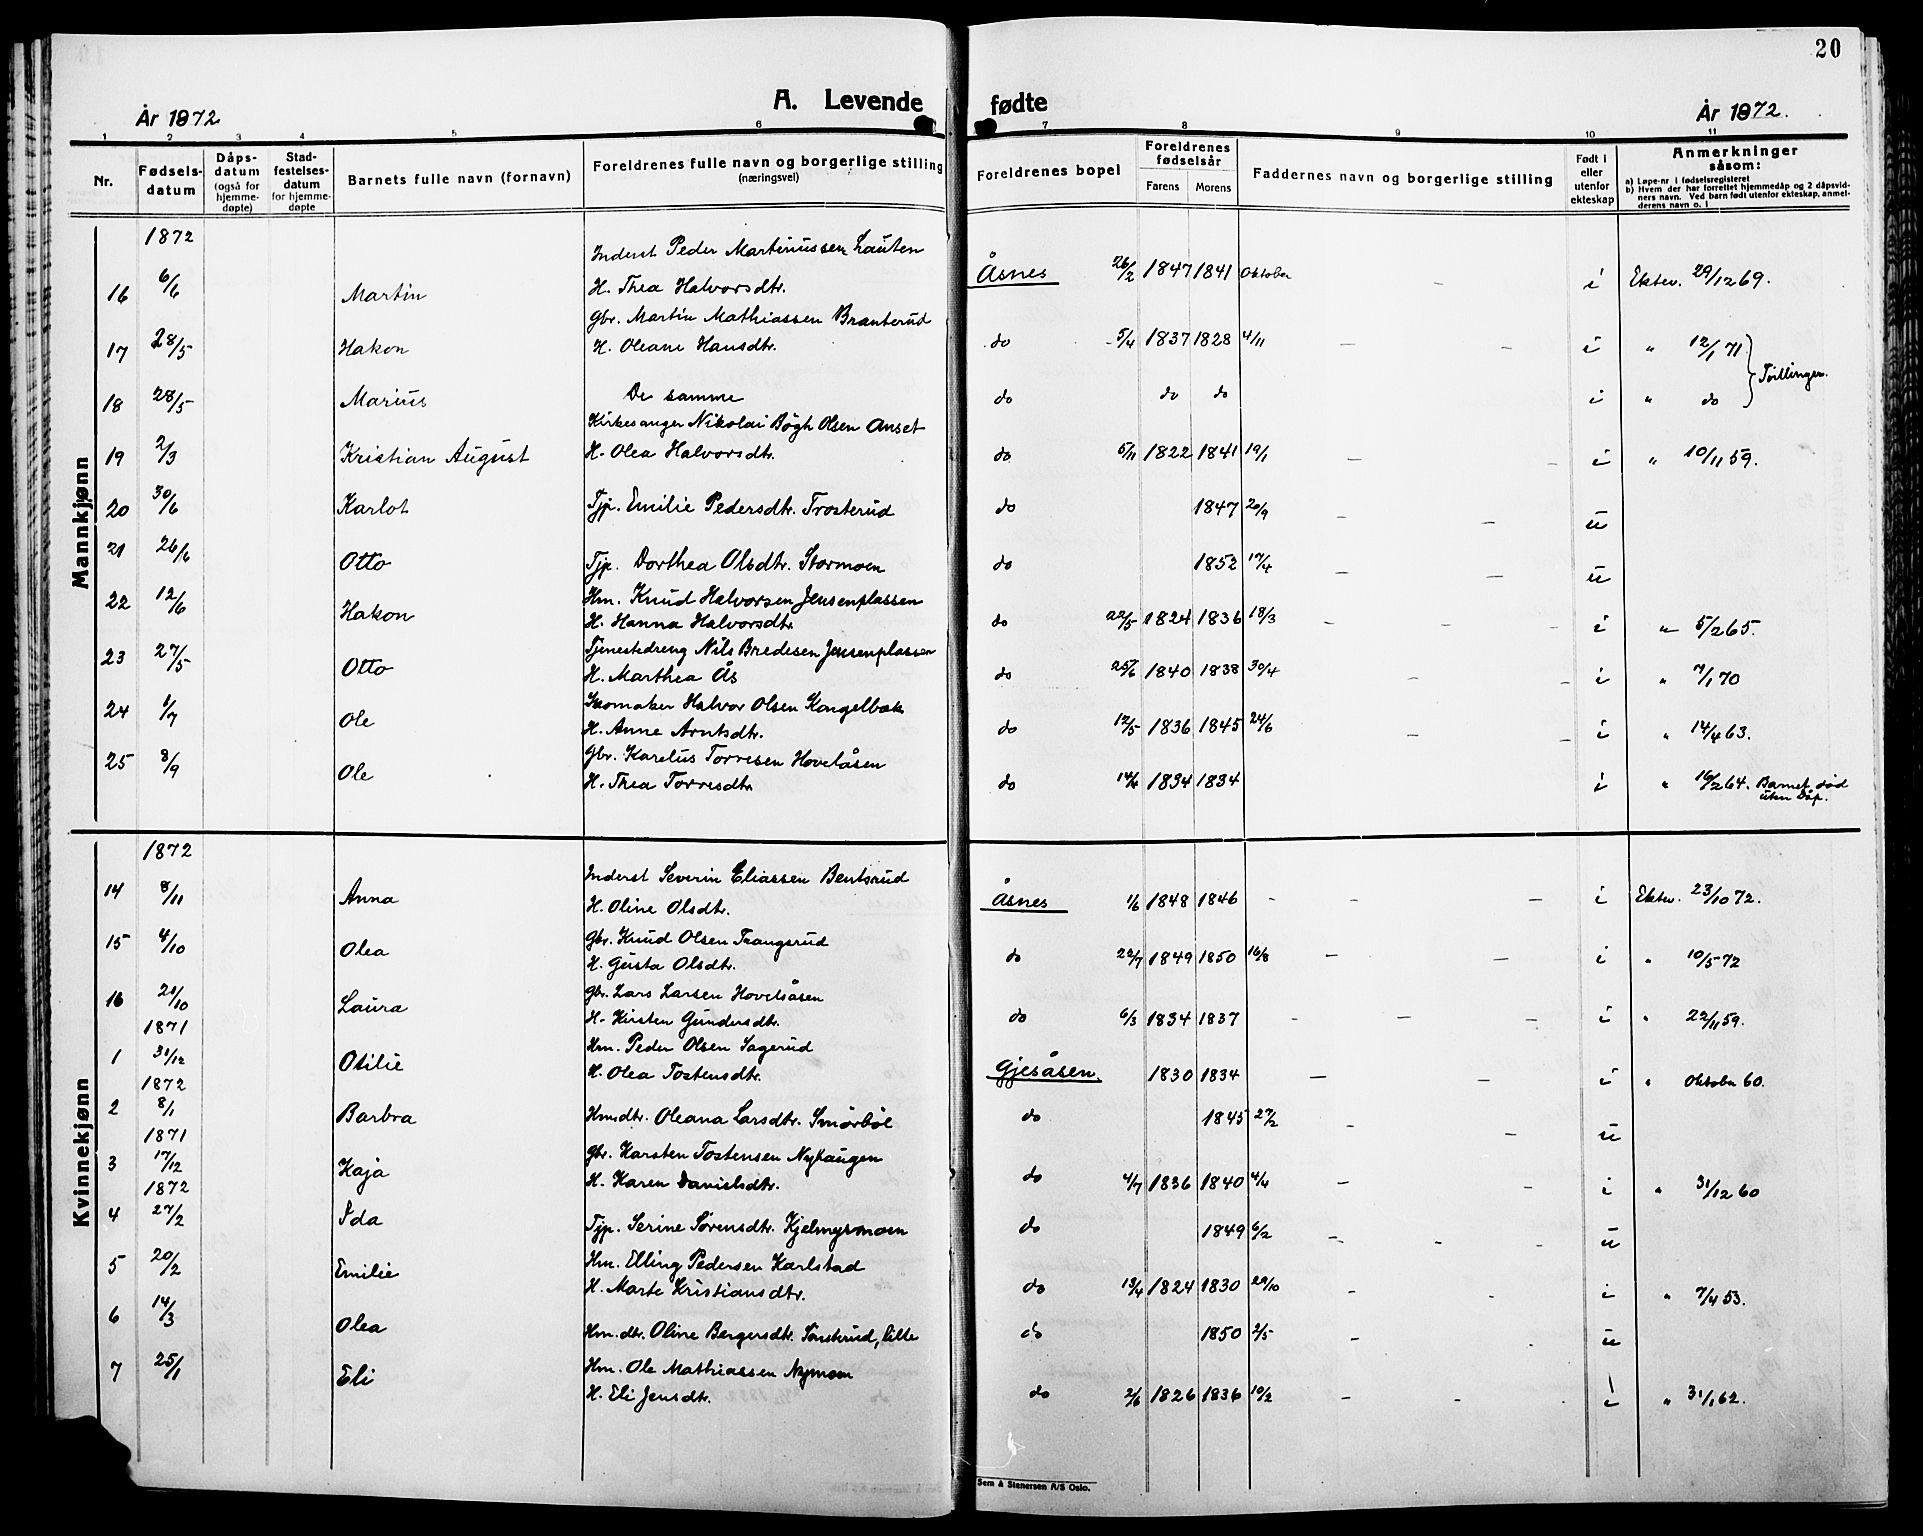 20
A. Levende fødte
År 1872
År 1872.
1 2 3 4 5 6 7 8 9 10 11
Nr.
Fødsels-
datum
Dåps-
datum
(også for
hjemme-
døpte)
Stad-
festelses-
datum
for hjemme-
døpte
Barnets fulle navn (fornavn)
Foreldrenes fulle navn og borgerlige stilling
(næringsvei)
Foreldrenes bopel
Foreldrenes
fødselsår
Farens Morens
Faddernes navn og borgerlige stilling
Født i
eller
utenfor
ekteskap
Anmerkninger
såsom:
a) Løpe-nr i fødselsregisteret
b) Hvem der har forrettet hjemmedåp og 2 dåpsvid-
ners navn. Ved barn født utenfor ekteskap, anmel-
derens navn o. l
Mannkjønn
1872
Inderst Peder Martinussen Lauten
16 6/6 Martin H. Thea Halvorsdtr. Åsnes 26/2 1847 1841 Oktober - i Ektev. 29/12 69.
Gbr. Martin Mathiassen Branterud
17 28/5 Hakon H. Oleane Hansdtr. do 5/4 1837 1828 4/11 - - i " 12/1 71 } Tvillinger.
18 28/5 Marius De samme do do do i " do
Kirkesanger Nikolai Bögh Olsen Anset
19 2/3 Kristian August H. Olea Halvorsdtr. do 5/11 1822 1841 19/1 - - i " 10/11 59.
20 30/6 Karlot Tjp. Emilie Pedersdtr. Trosterud do 1847 20/9 - - u
21 26/6 Otto Tjp. Dorthea Olsdtr. Stormoen do 1852 17/4 - - u
Hm. Knud Halvorsen Jensenplassen
22 12/6 Hakon H. Hanna Halvorsdtr. do 22/5 1824 1836 18/3 - - - i " 5/2 65.
Tjenestedreng Nils Bredesen Jensenplassen
23 27/5 Otto H. Marthea Ås do 25/6 1840 1838 30/4 - - i " 7/1 70
Skomaker Halvor Olsen Kongelbæk
24 1/7 Ole H. Anne Arntsdtr. do 12/5 1836 1845 24/6 - - i " 14/4 63.
Gbr. Karelus Torresen Hovelsåsen
25 8/9 Ole H. Thea Torresdtr. do 14/4 1834 1834 i " 16/2 64. Barnet død
uten Dåp.
Kvinnekjønn
1872
Inderst Severin Eliassen Bentsrud
14 8/11 Anna H. Oline Olsdtr. Åsnes 1/6 1848 1846 - - - i Ektev. 23/10 72.
Gbr. Knud Olsen Trangsrud
15 4/10 Olea H. Gusta Olsdtr. do 22/7 1849 1850 16/8 - - i " 10/5 72
Gbr. Lars Larsen Hovelsåsen
16 21/10 Laura H. Kirsten Gundersdtr. do 6/3 1834 1837 - - - i " 22/11 59.
1871
Hm. Peder Olsen Sagerud
1 31/12 Otilie H. Olea Tostensdtr. Gjesåsen. 1830 1834 - - i " Oktober 60.
1872
2 8/1 Barbra Hmsdtr. Oleana Larsdtr. Smörböl do 1845 27/2 - - u
1871
Gbr. Karsten Tostensen Nyhaugen
3 17/12 Kaja H. Karen Danielsdtr. do 4/7 1836 1840 4/4 - - i " 31/12 60
1872
4 27/2 Ida Tjp. Serine Sørensdtr. Kjelmyrmoen do 1849 6/2 - - - u
Hm. Elling Pedersen Karlstad
5 20/2 Emilie H. Marte Kristiansdtr. do 13/4 1824 1830 29/10 - - i " 7/4 53.
6 14/3 Olea Hm.dtr. Oline Bergersdtr. Sönsterud, lille do 1850 2/5 - u
Hm. Ole Mathiassen Nymoen
7 25/1 Eli H. Eli Jensdtr. do 2/6 1826 1836 10/2 - - i " 31/1 62.
Sem & Stenersen A/S Oslo.